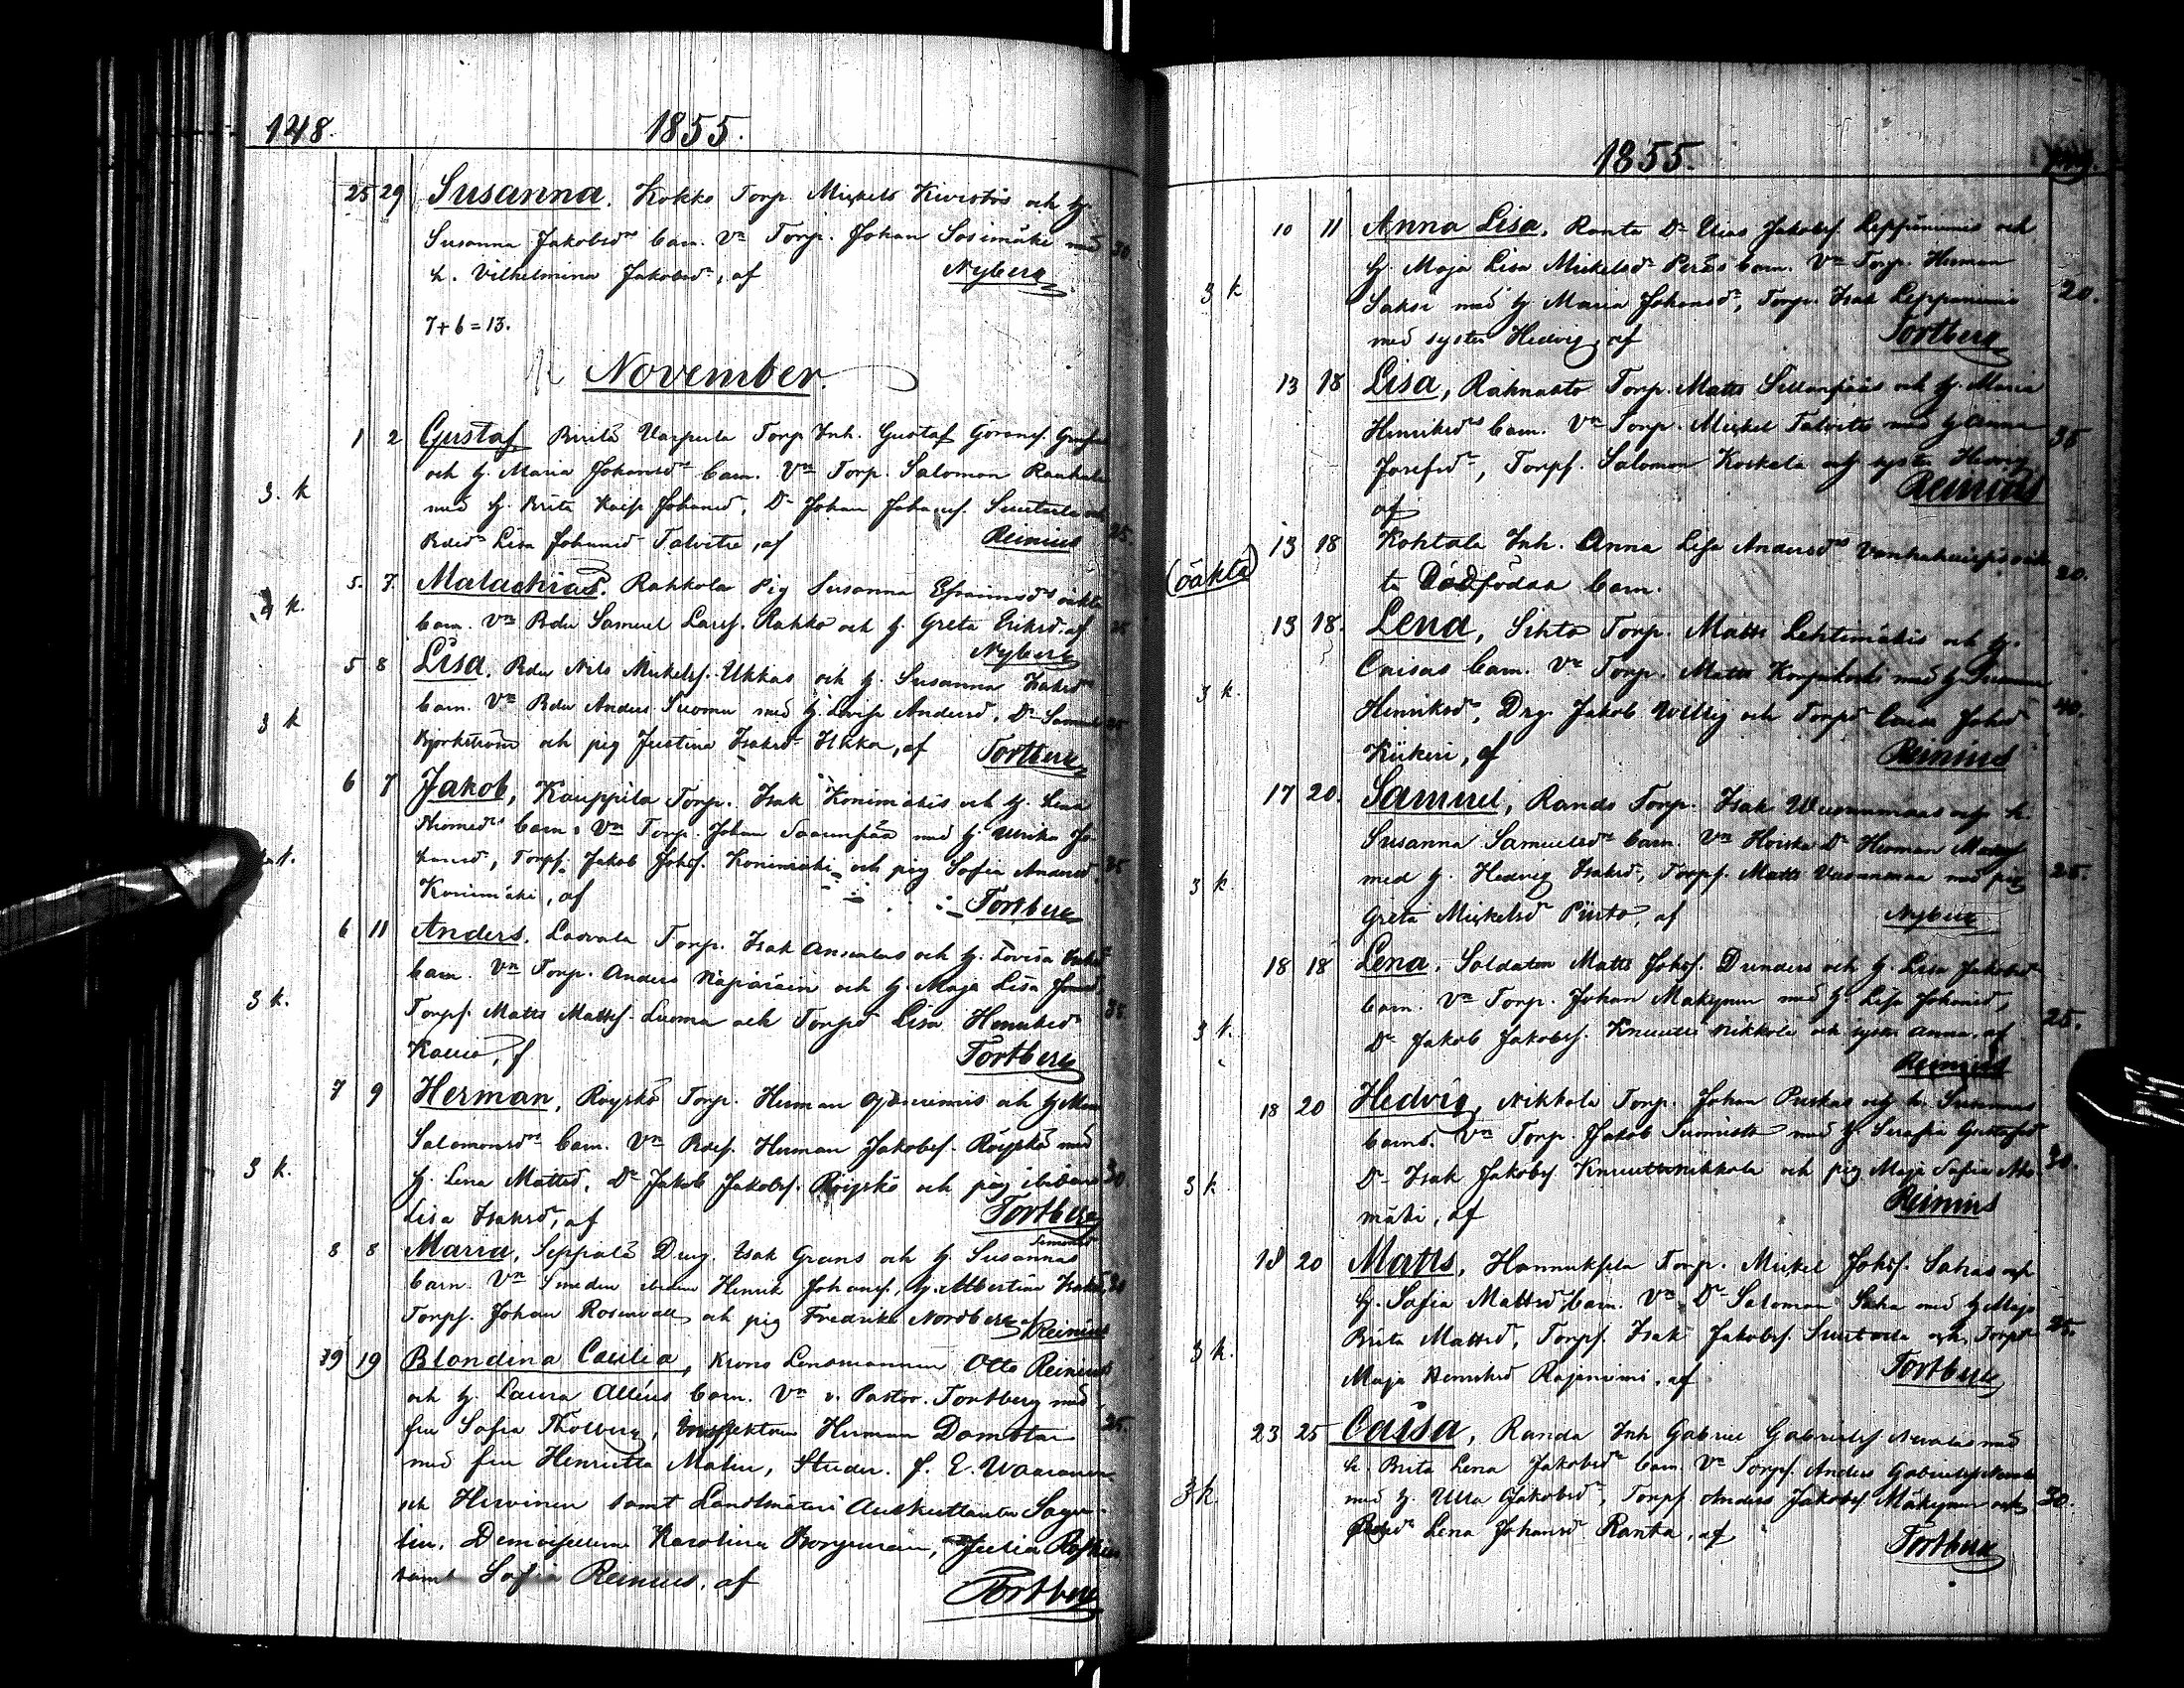 148.
1855.
25 29 Susanna. Kokko Torp. Mickels Kivistös och h.
Susanna Jakobsdrs barn. Vn Torp. Johan Sasimäki med 30.
h. Vilhelmina Jakobsdr, af Nyberg
7+6=13.
November.
1 2 Gustaf, Torp Inh. Gustaf
och h. Maria Johansdrs barn. Vn Torp. Salomon Rauhala
3. k med h. Brita Kaisa Johansd, Dr Johan Johansf. Suutarla och 25.
Bdedr Lisa Johansd Talvitie, af Reinius
5. 7 Malachias. Rahkola Pig Susanna Efraimsdrs oäkta
k. barn. Vn Bdn Samuel Larsf. Rahko och h. Greta Eriksd. af 25
Nyberg
5 8 Lisa. Bdn Nils Mickelsf. Ukkas och h. Susanna Isaksdrs
barn. Vn Bdn Anders Tuoma med h. Lovisa Andersd, Dr Samuel 25
3 k Björkström och pig Justina Isaksdr Ukka, af Tortberg
6 7 Jakob, Kauppila Torp. Isak Konimäkis och h. Lena
Thomasdrs barn. Vn Torp. Johan Saarenpää med h. Ulrika Jo
hansd, Torpf. Jakob Johsf. Konimäki och pig Sofia Andersd. 35
Konimäki, af Tortberg
6 11 Anders. Laovala Torp. Isak Ansalas och h. Lovisa
barn. Vn Torp. Anders och h. Maja Lisa
3 k. Torpf. Matts Mattsf. Luoma och Torpdr Lisa Henriksdr 35
Kauio, af Tortberg
7 9 Herman, Röyskö Torp. Herman Ojaniemis och h
Salomonsdrs barn. Vn Bdsf. Herman Jakobsf. Röyskö med
3 k. h. Lena Mattsd, Dr Jakob Jakobsf. Röyskö och pig ibidem 30
Lisa Isaksd, af Tortberg
8 8 Maria, Seppälä Dräg. Isak Grans och h. Susannas Simonsd
barn. Vn Smeden ibidem Henrik Johansf., h. Albertina Isaksd, 20
Torpf. Johan Rosenvall och pig Fredrika Nordberg af Reinius
39 19 Blondina Cecilia, Krono Lensmannen Otto Reinius
och h. Laura Alléns barn. Vn v. Pastor Tortberg med
fru Sofia Tholberg, Inspektorn Herman Domstar 25.
med fru Henrietta Malin, Studer. J. E. Waaranen
och Hirvinen samt Landtmäteri Auskultanten Sage-
lin, Demoisellerna Karolina Borgman, Julia
samt Sofia Reinius, af Tortberg
1855.
149.
10 11 Anna Lisa, Ranta Dr Elias Jakobsf. Leppiniemis och
h. Maja Lisa Mickelsdr Peräs barn. Vn Torp. Herman
3 k Saksi med h. Maria Johansdr, Torp. Isak Leppiniemi 20.
med syster Hedvig, af Tortberg
13 18 Lisa, Rahnasto Torp. Matts Sillanpääs och h. Maria
Henriksdrs barn. Vn Torp. Mickel Talvitie med h. Anna 35
Josefsdr, Torpf. Salomon Koskela och syster Hedvig
af Reinius
13 18 Kohtala Inh. Anna Lisa Andersdrs
(oäkta) ta Dödfödda barn. 20.
13 18. Lena, Sihto Torp. Matts Lehtimäkis och h.
Caisas barn. Vn Torp. Matts Korpikoski med h. Susanna
3 k. Henriksdr, Drg. Jakob Willig och Torpdr Caisa Johsd 40.
Kiikeri, af Reinius
17 20. Samuel, Rando Torp. Isak Uusenmaas och h.
Susanna Samuelsdrs barn. Vn Hoiska Dr Herman
3 k. med h. Hedvig Isaksdr, Torpf. Matts Uusenmaa med pig 25.
Greta Mickelsdr Piirto, af Nyberg
18 18 Lena, Soldaten Matts Johsf. Dunders och h. Lisa Jakobsd
barn. Vn Torp. Johan Mäkynen med h. Lisa Johansd,
3 k. Dr Jakob Jakobsf. Knuutti Nikkola och syster Anna, af 25.
Reinius
18 20 Hedvig, Nikkola Torp. Johan Puskas och h. Susannas
barn. Vn Torp. Jakob Suomista med h. Serafia Gustafsd
3 k Dr Isak Jakobsf. Knuuttinikkola och pig Maja Sofia Aho- 30.
mäki, af Reinius
18 20 Matts, Hannuksela Torp. Mickel Johsf. Sahas och
h. Sofia Mattsd, barn. Vn Dr Salomon Saha med h Maja
3 k. Brita Mattsd, Torpf. Isak Jakobsf. Suutarla och Torpdr 25.
Maja Henriksd Rajaniemi, af Tortberg
23 25 Caisa, Randa Inh Gabriel Gabrielsf. Nevalas med
h. Brita Lena Jakobsdrs barn. Vn Torpf. Anders Gabrielsf Nevala
3 k. med h. Ulla Jakobsdr, Torpf. Anders Jakobsf Mäkynen och 30.
Lena Johansdr Ranta, af Tortberg